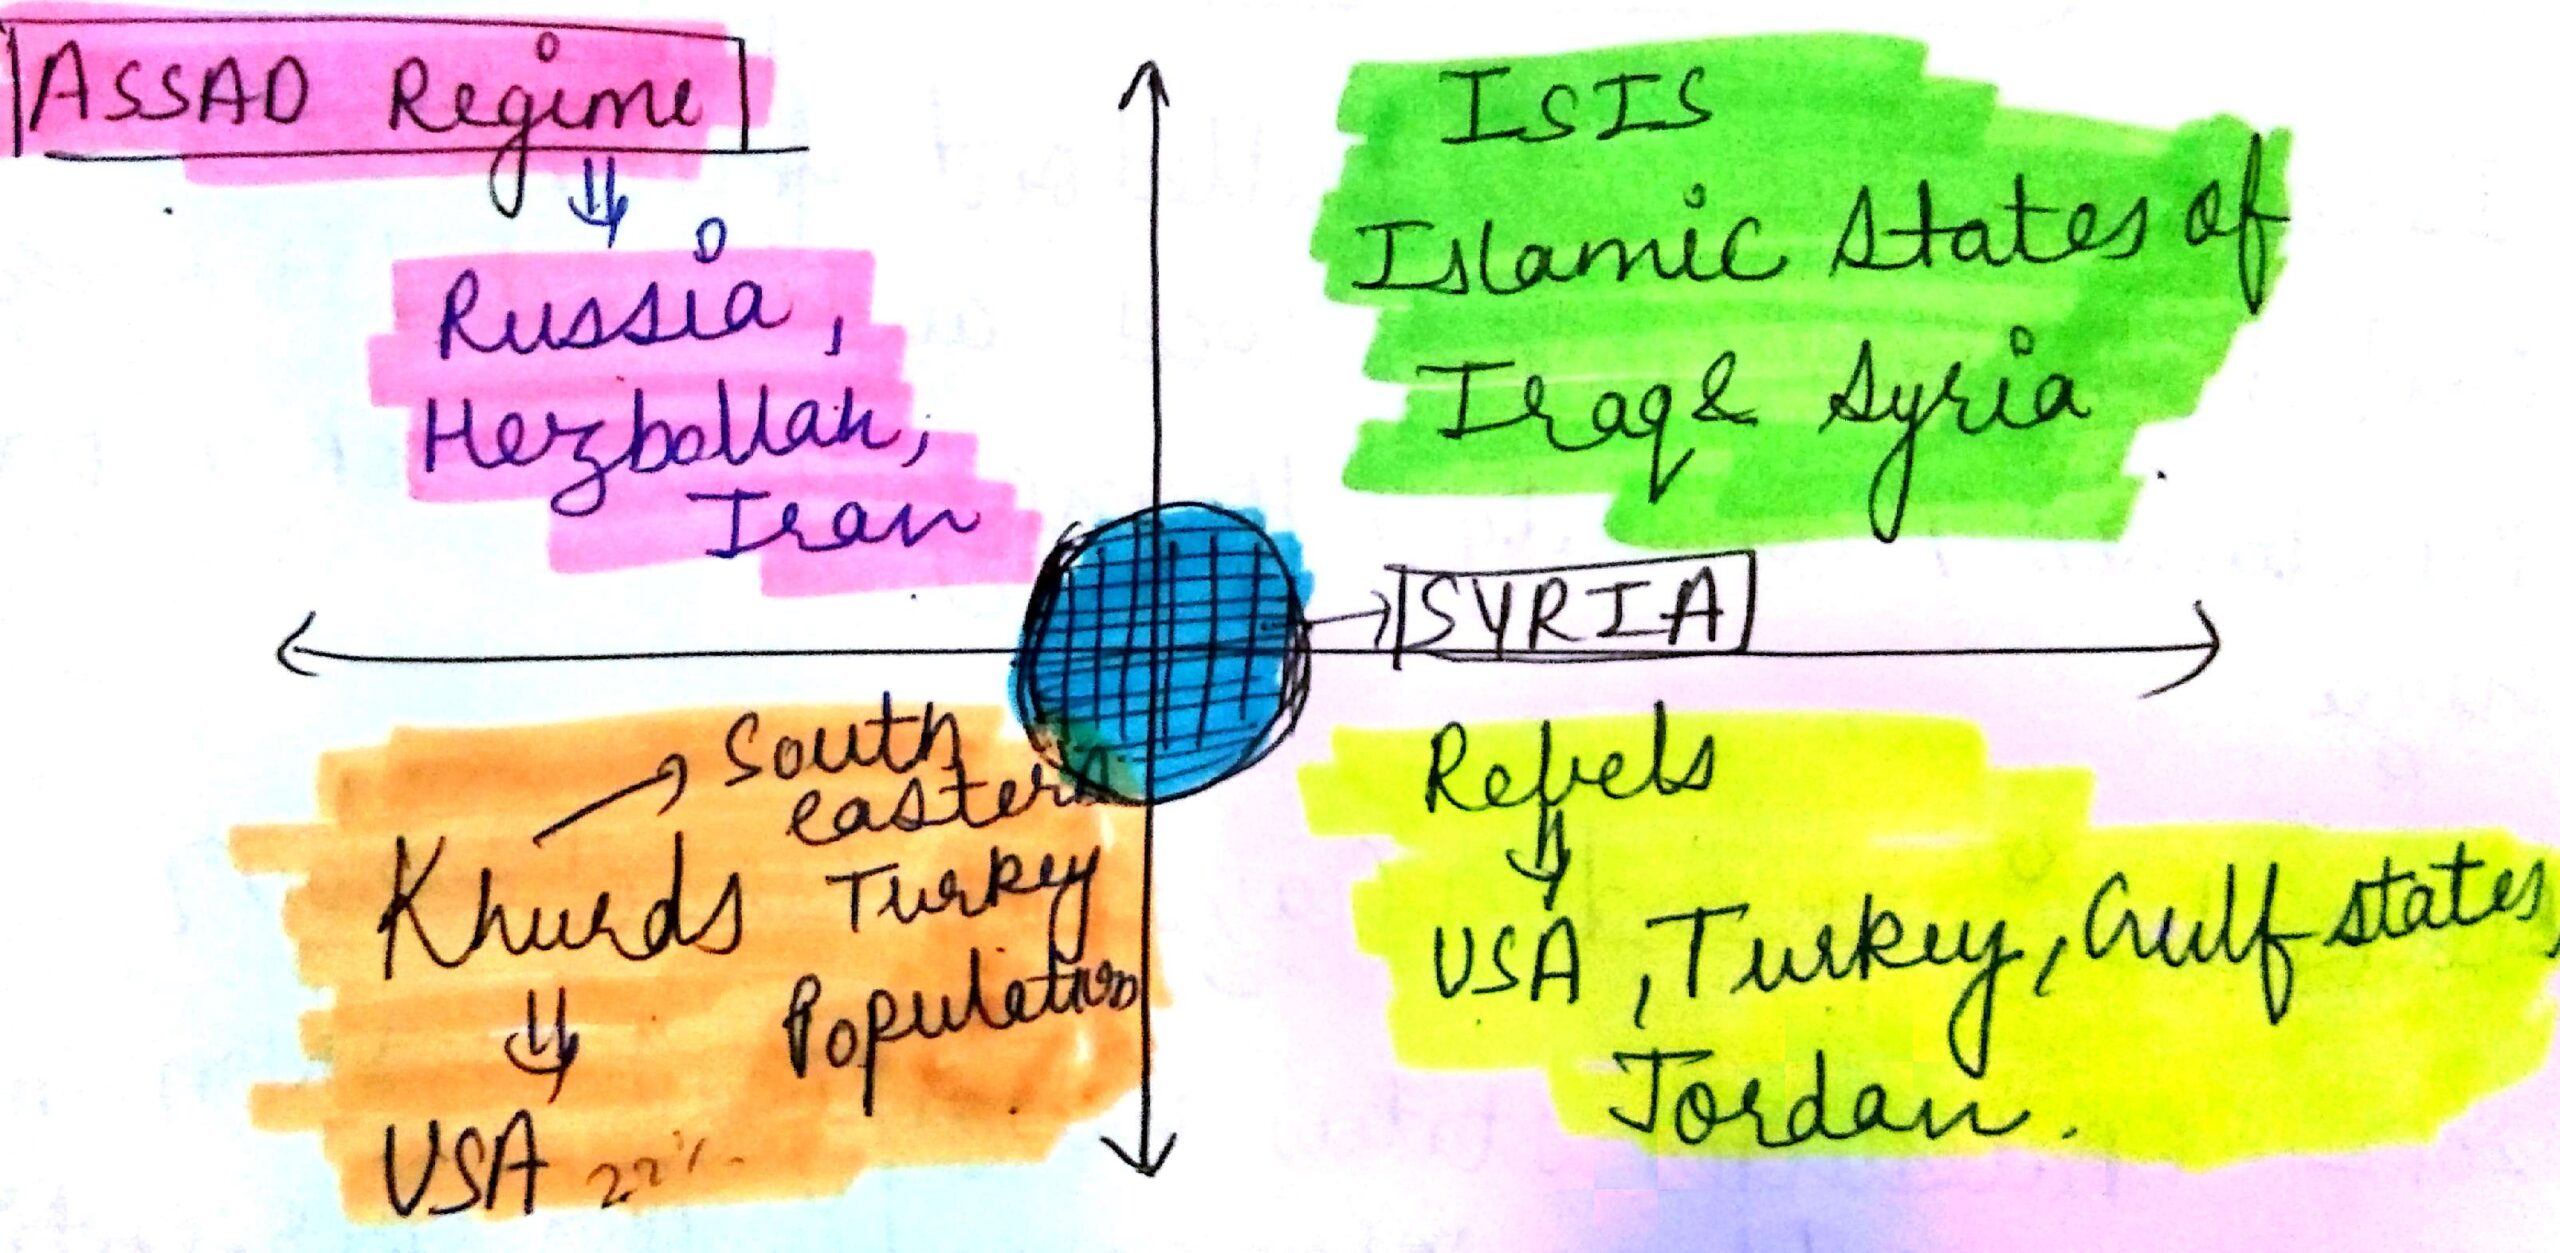 ASSAD Regime
Russia,
Hezbollah,
Iran
ISIS
Islamic States of
Iraq & Syria
SYRIA
Khurds
South
eastern
Turkey
Population
USA 22%
Rebels
USA, Turkey, Gulf states,
Jordan.